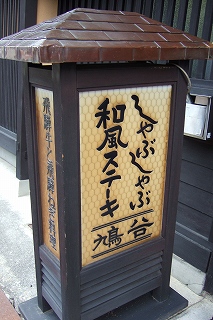 しゃぶしゃぶ
和風ステーキ
鳩谷
飛騨牛と飛騨ねぎ料理